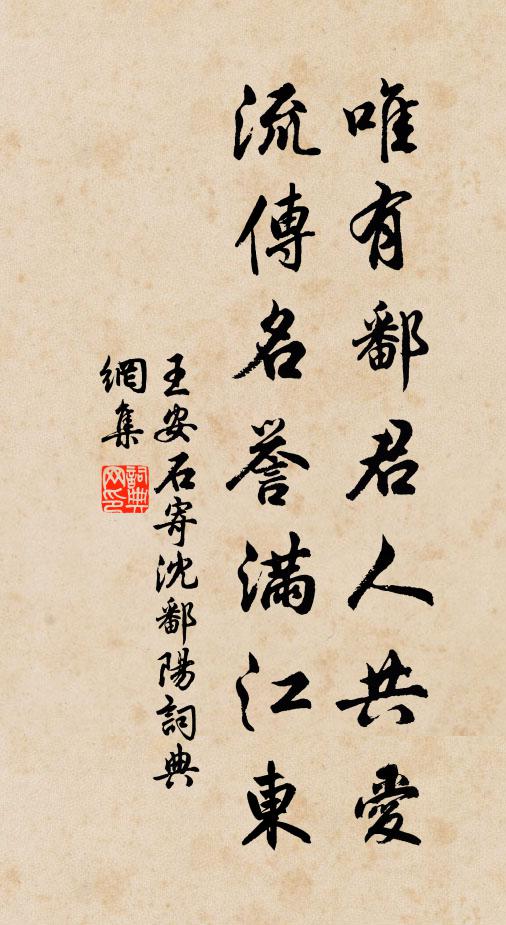 唯有鄱君人共愛
流傳名譽滿江東
王安石寄沈鄱陽詞典
網集
詞典網印